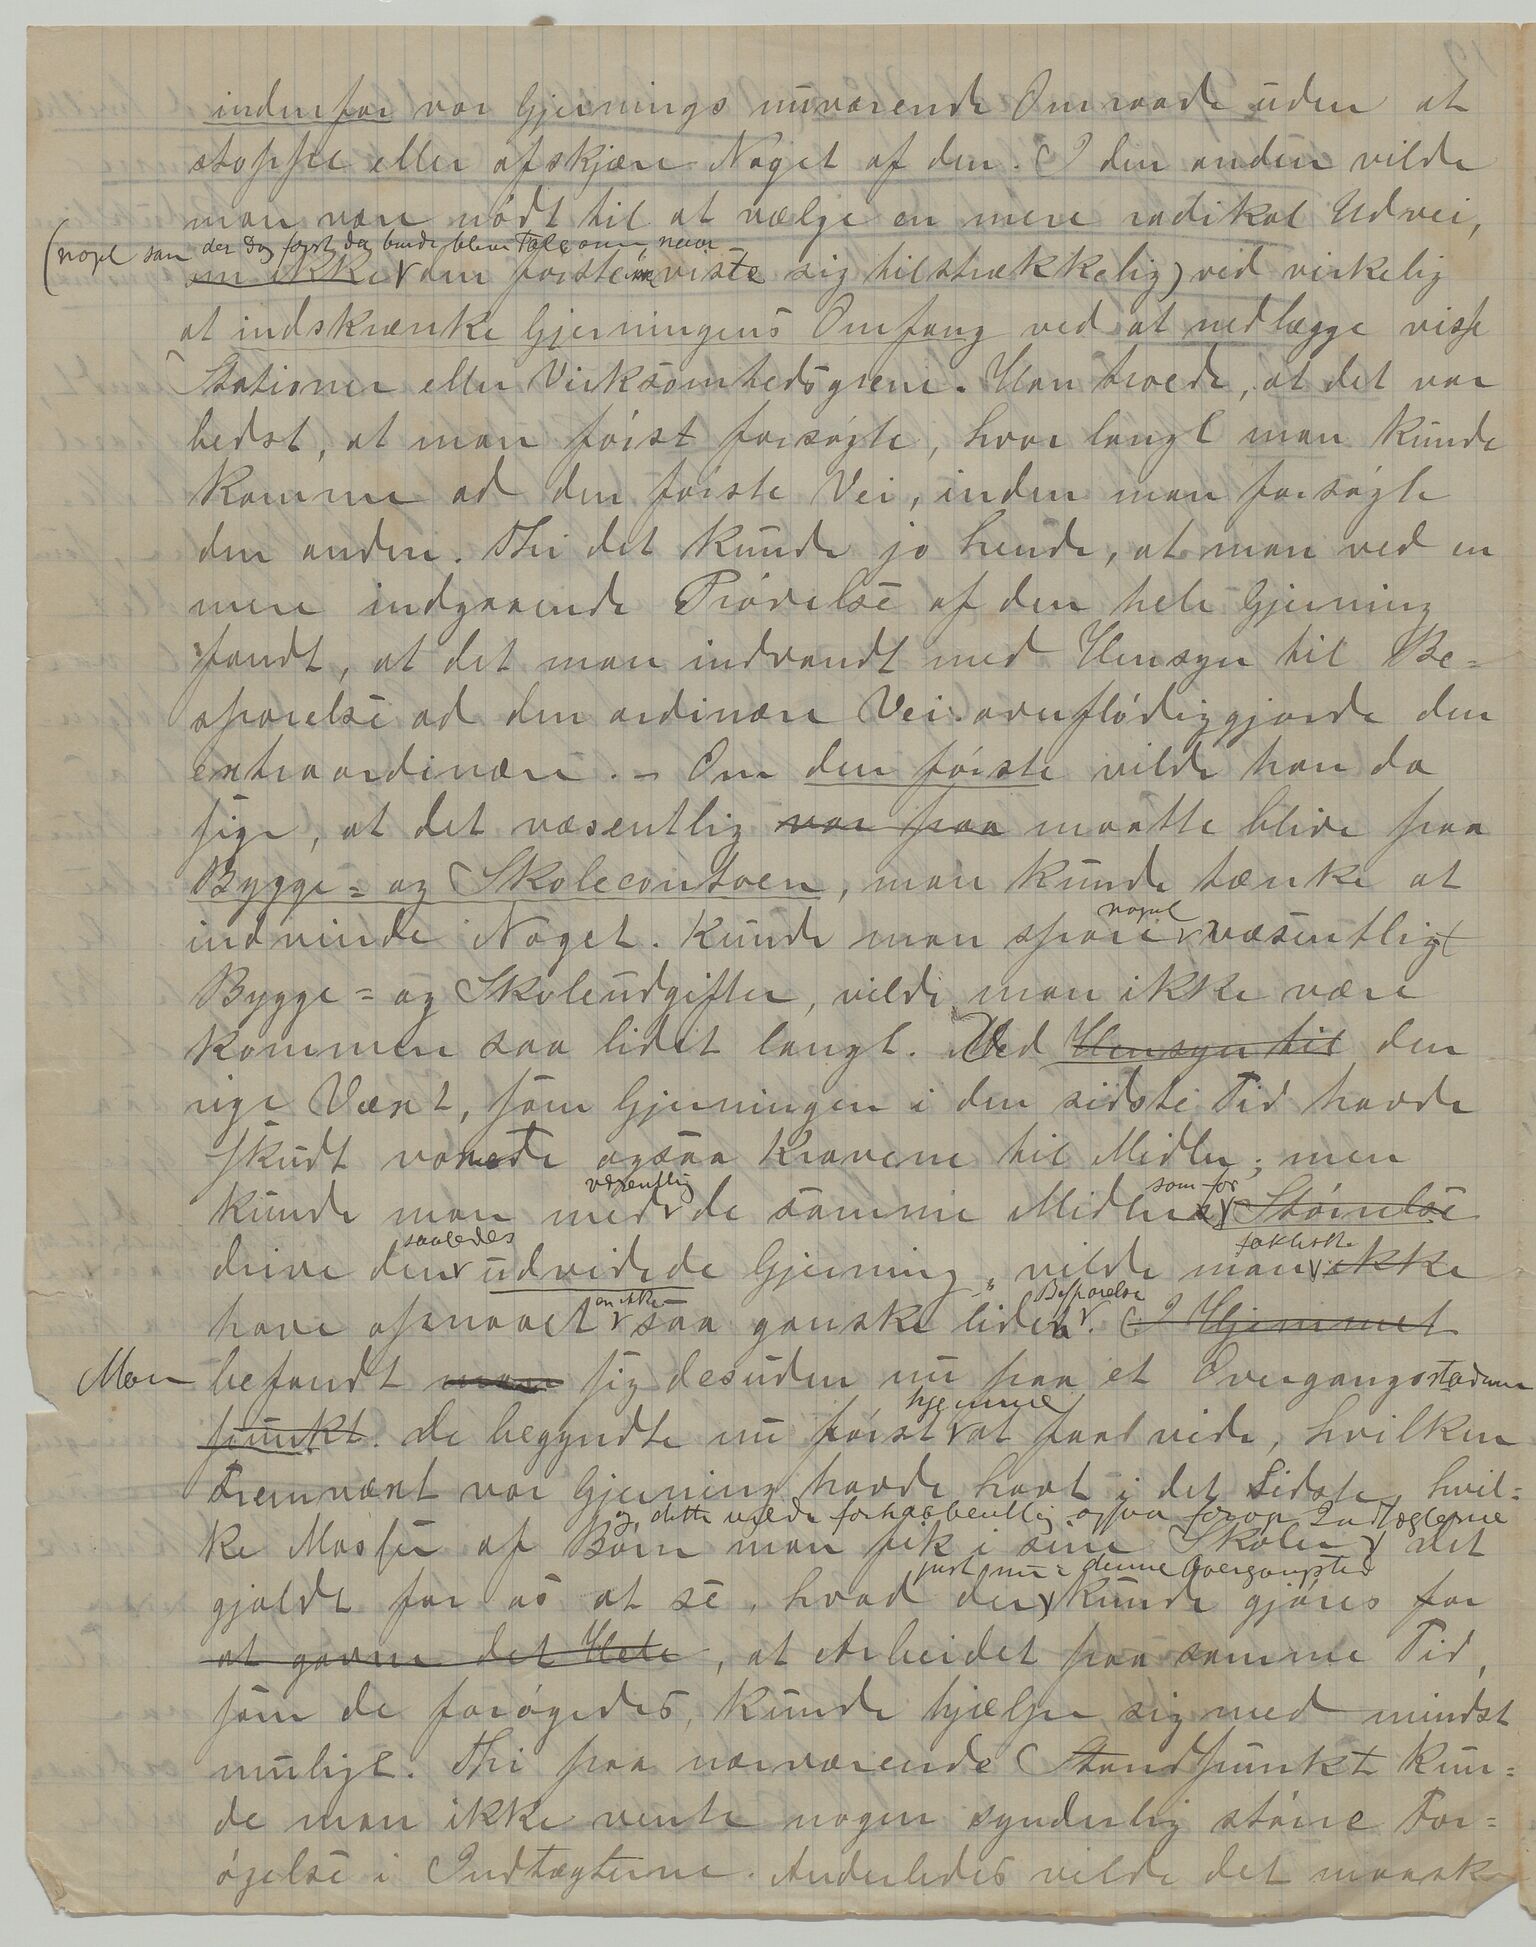 indenfor vor Gjernings nuværende Omraade uden at
stoppe eller afskjære Noget af den. I den anden vilde
man være nødt til at vælge en mere radikal Udvei,
(noget som der dog først da burde blive Tale om, naar
om ikke den første viste sig tilstrækkelig) ved virkelig
at indskrænke Gjerningens Omfang ved at nedlægge visse
Stationer eller Virksomhedsgrene. Han troede, at det var
bedst, at man først forsøgte, hvor langt man kunde
komme ad den første Vei, inden man forsøgte
den anden. Thi det kunde jo hende, at man ved en
mere indgaaende Prøvelse af den hele Gjerning
fandt, at det man indvandt med Hensyn til Be-
sparelse ad den ordinære Vei overflødiggjorde den
extraordinære. – Om den første vilde han da
sige, at det væsentlig var paa maatte blive paa
Bygge- og Skolecontoen, man kunde tænke at
indvinde Noget. Kunde man spare noget væsentligt
Bygge- og Skoleudgifter, vilde man ikke være
kommen saa lidet langt. Ved Hensyn til den
rige Væxt, som Gjerningen i den sidste Tid havde
skudt voxede ogsaa Kravene til Midler; men
kunde man med væsentlig de samme Midler som før Størrelse
drive den saaledes udvidede Gjerning, vilde man faktisk ikke
have opnaaet en ikke saa ganske liden Besparelse. I Hjemmet
Man befandt man sig desuden nu paa et Overgangsstadium
punkt. De begyndte nu først hjemme at faa vide, hvilken
Fremvæxt vor Gjerning havde havt i det Sidste, hvil-
ke Masser af Børn man fik i sine Skoler og dette vilde forhaabentlig ogsaa forøge Indtægterne det
gjaldt for os at se, hvad der just nu i denne Overgangstid kunde gjøres for
at gavne det Hele, at Arbeidet paa samme Tid,
som de forøgedes, kunde hjælpe sig med mindst
muligt. Thi paa nærværende Standpunkt kun-
de man ikke vente nogen synderlig større For-
øgelse i Indtægterne. Anderledes vilde det maaske